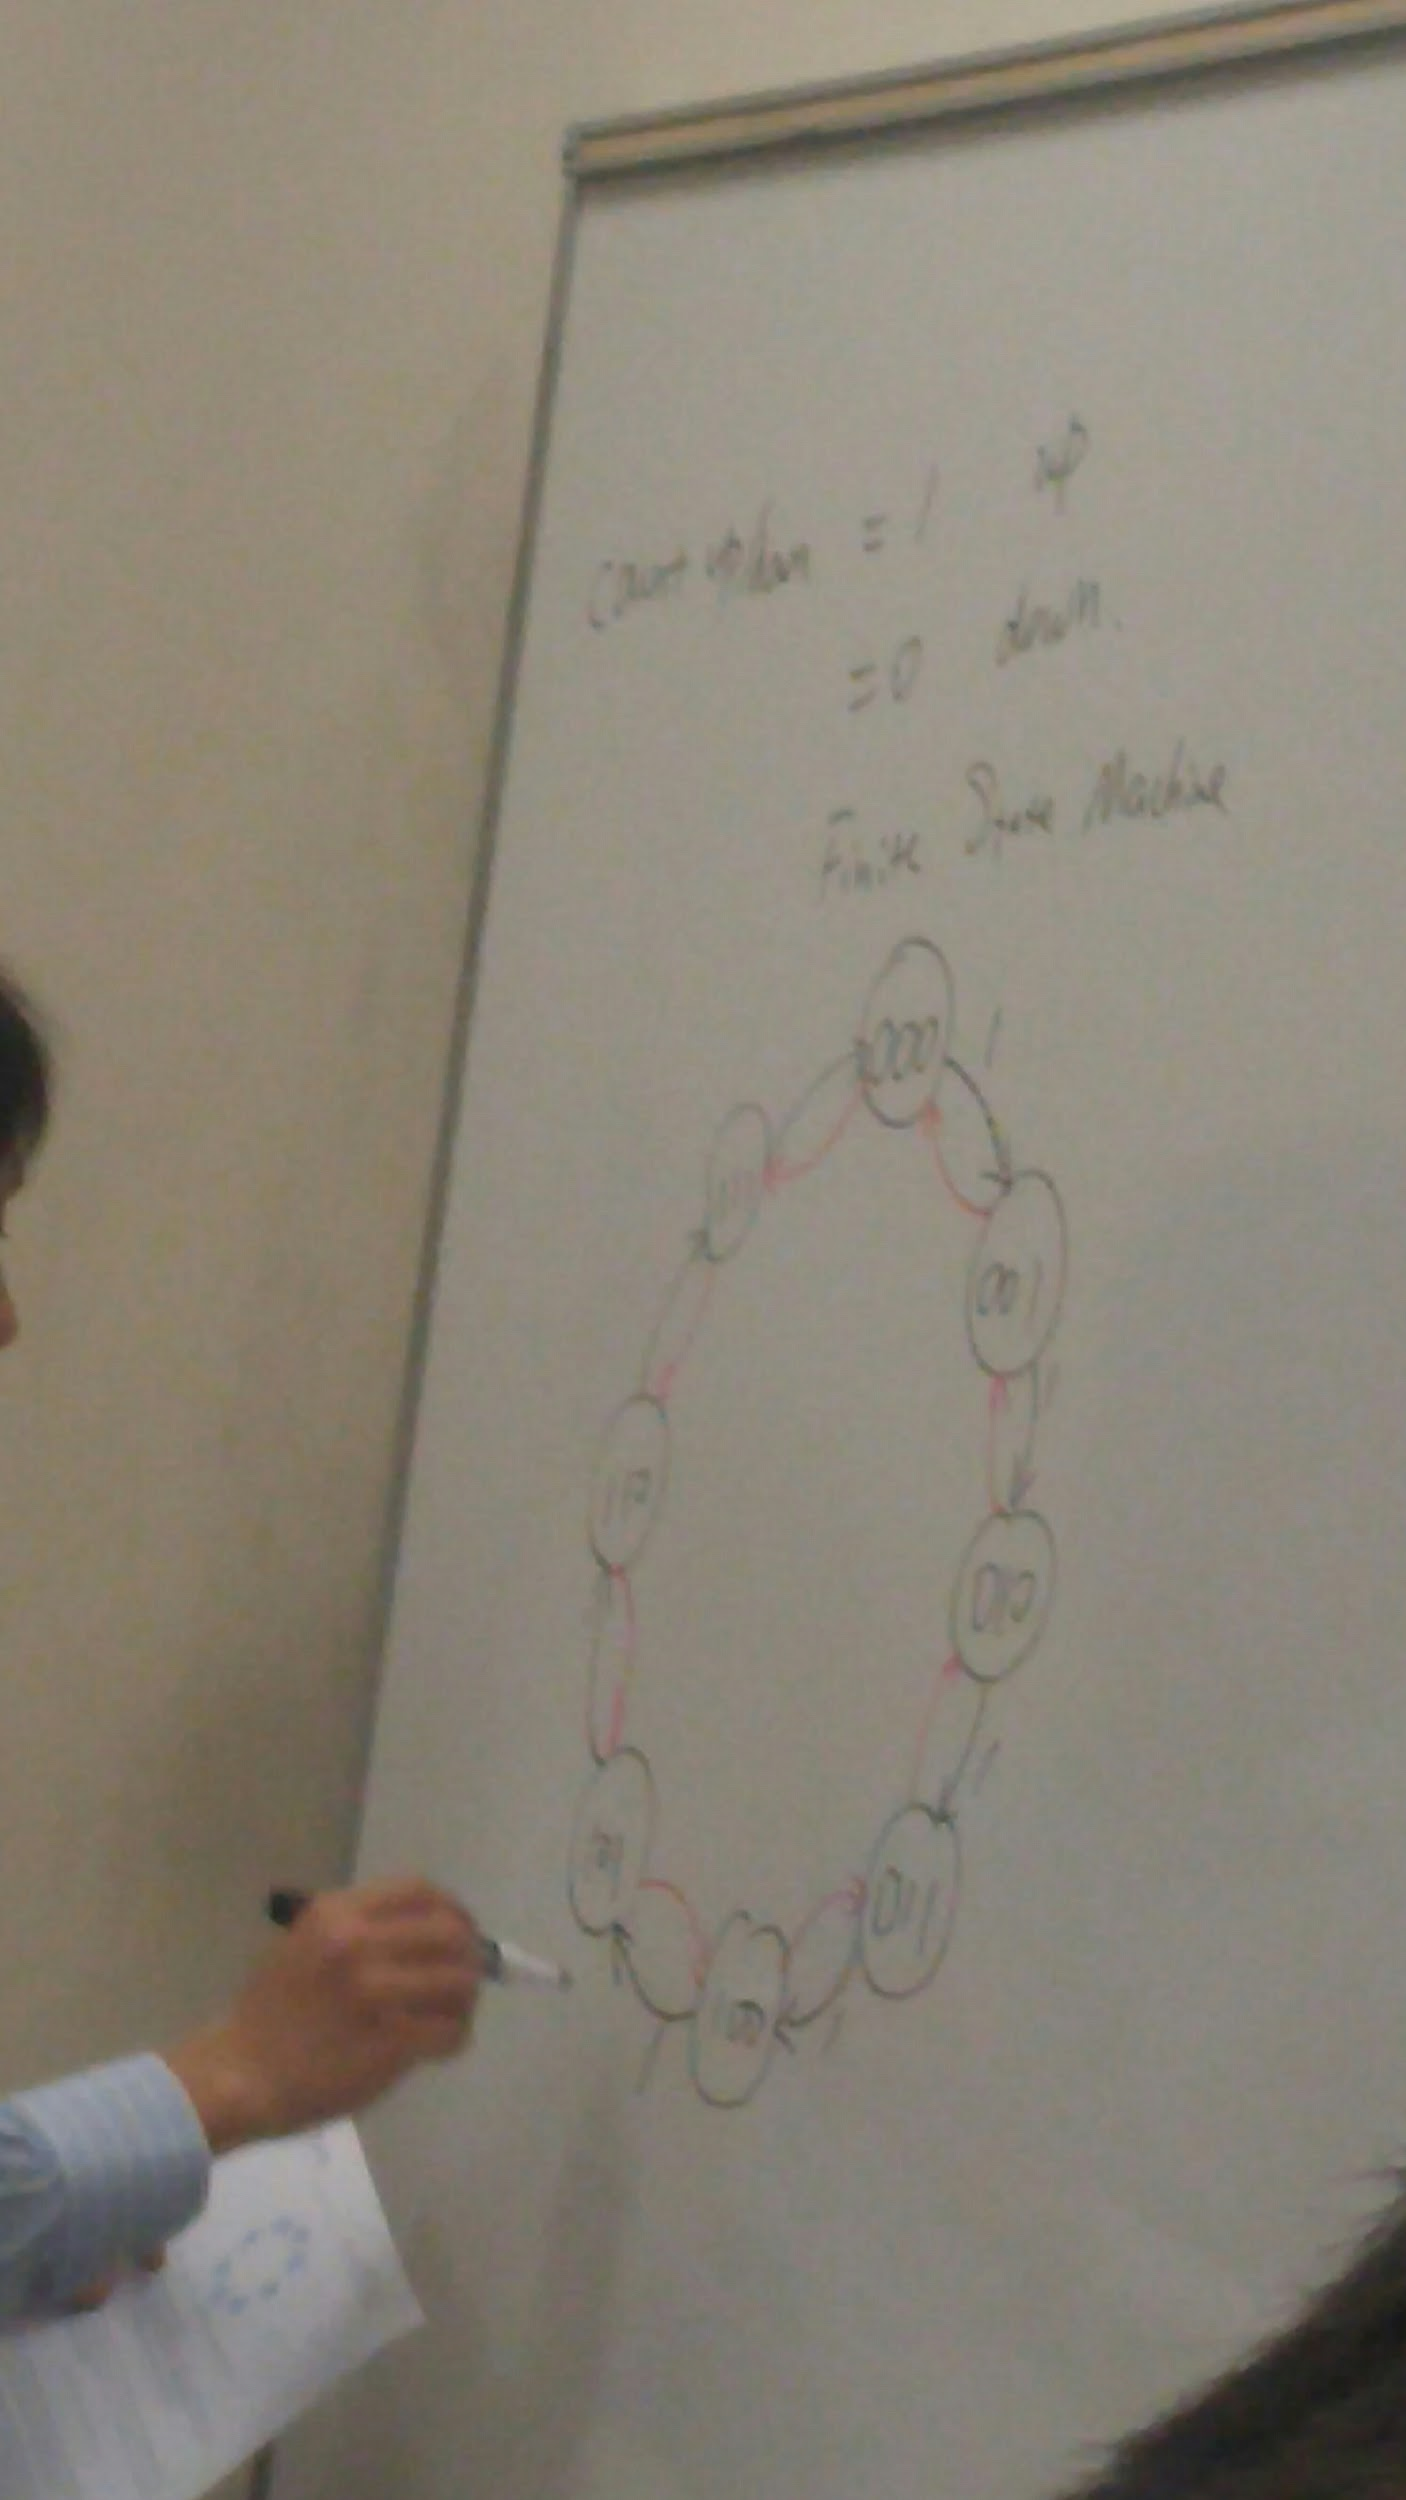 count up/down = 1 up
= 0 down.
Finite State Machine
000
1
111
001
1
110
010
1
101
011
100
1
1